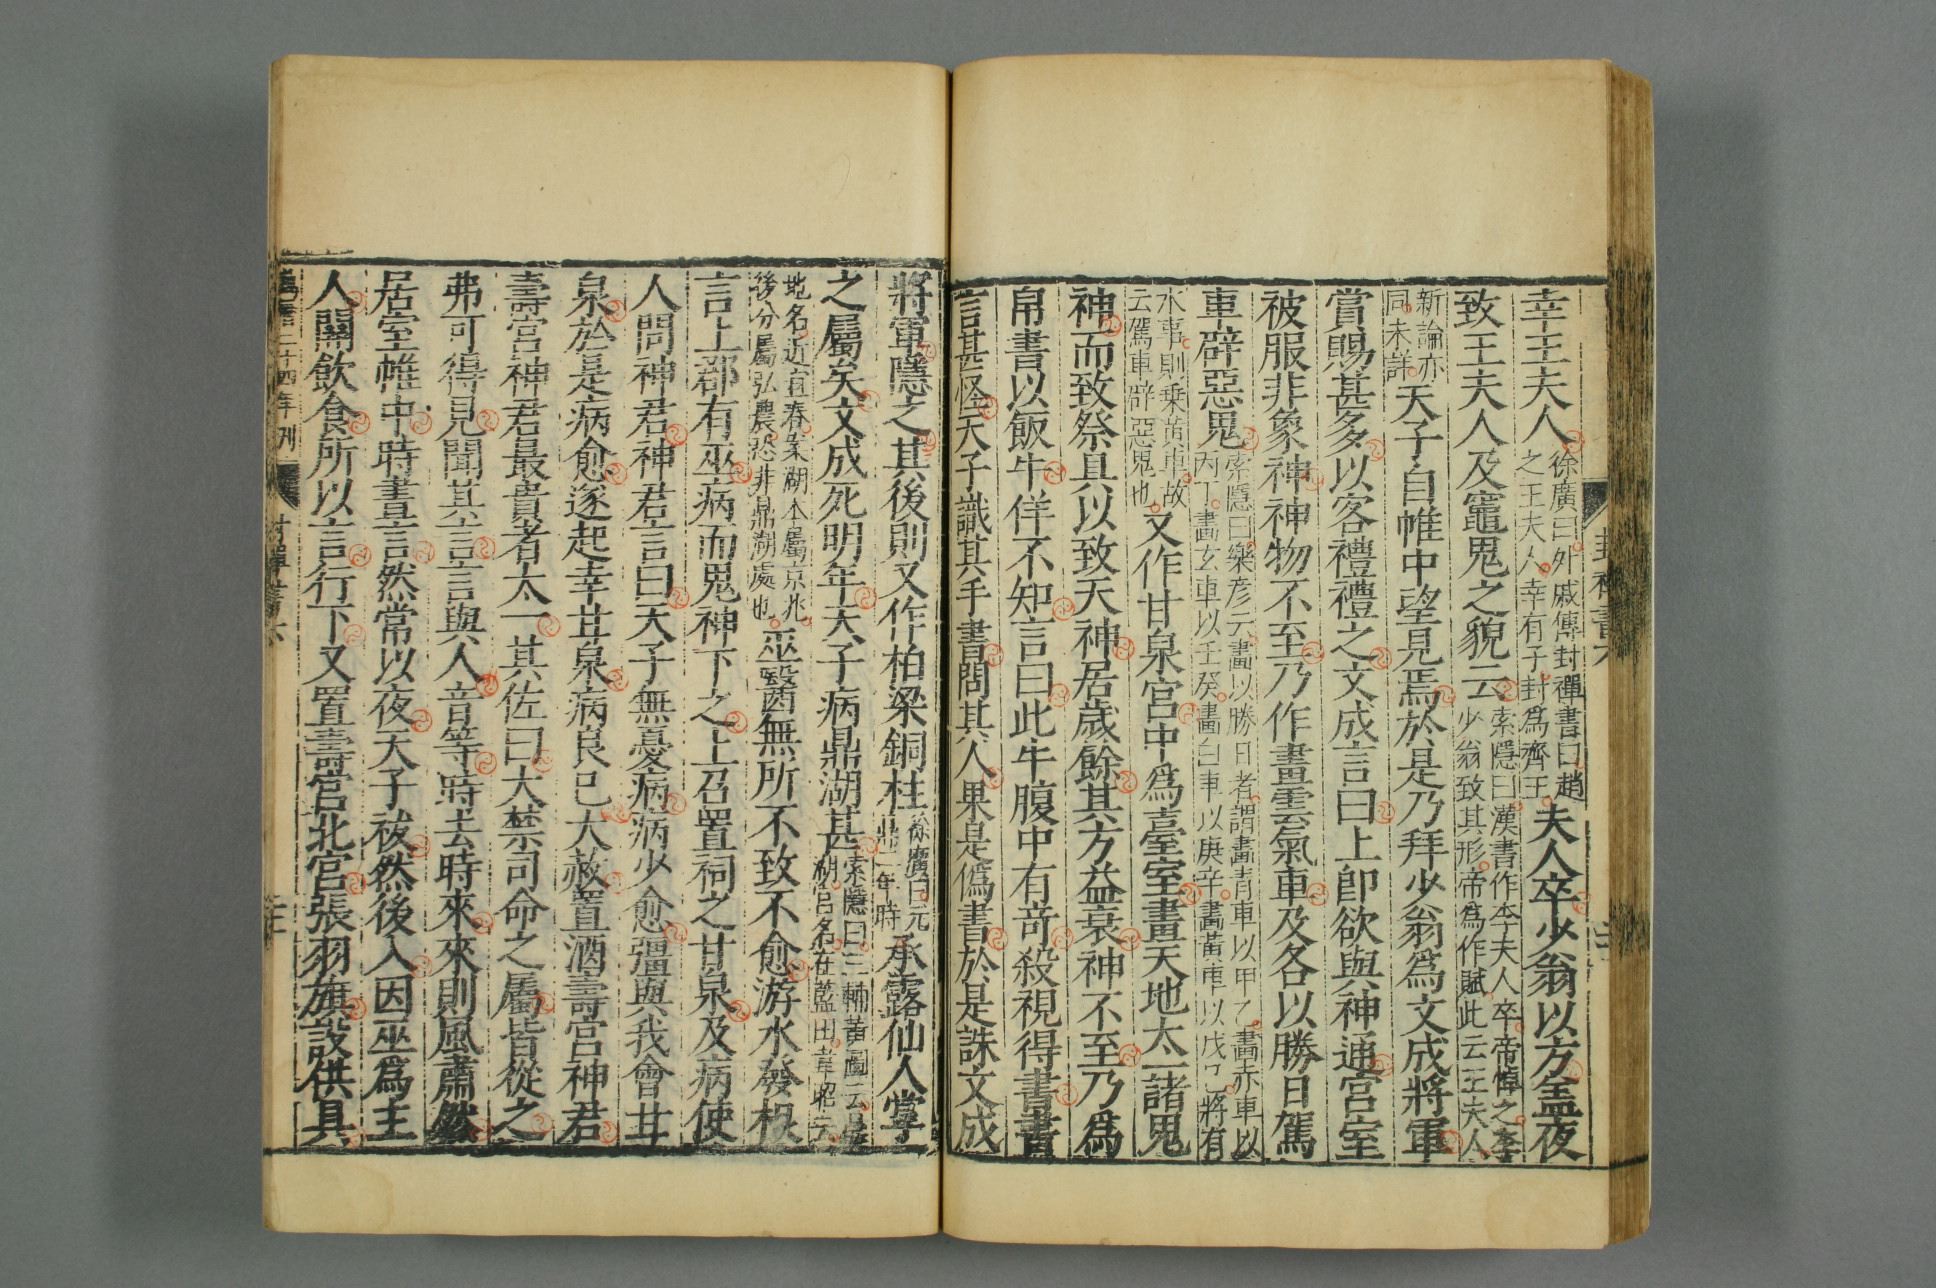 幸王夫人徐廣曰外戚傳封禪書曰趙之王夫人幸有子封爲齊王夫人卒少翁以方蓋夜
致王夫人及竈鬼之貌云索隱曰漢書作李夫人卒帝悼之李少翁致其形帝爲作賦此云王夫人
新論亦同未詳天子自帷中望見焉於是乃拜少翁爲文成將軍
賞賜甚多以客禮禮之文成言曰上卽欲與神通宮室
被服非象神神物不至乃作畫雲氣車及各以勝日駕
車辟惡鬼索隱曰樂彥云畫以勝日者謂畫青車以甲乙畫赤車以丙丁畫玄車以壬癸畫白車以庚辛畫黃車以戊己將有
水事則乗黃車故云駕車辟惡鬼也又作甘泉宮中爲臺室畫天地太一諸鬼
神而致祭具以致天神居歲餘其方益衰神不至乃爲
帛書以飯牛佯不知言曰此牛腹中有奇殺視得書書
言甚怪天子識其手書問其人果是僞書於是誅文成
將軍隱之其後則又作柏梁銅柱徐廣曰元鼎二年時承露仙人掌
之屬矣文成死明年天子病鼎湖甚索隱曰三輔黃圖云鼎湖宮名在藍田韋昭云
地名近宜春案湖本屬京兆後分屬弘農恐非鼎湖處也巫醫無所不致不愈游水發根
言上郡有巫病而鬼神下之上召置祠之甘泉及病使
人問神君神君言曰天子無憂病病少愈彊與我會甘
泉於是病愈遂起幸甘泉病良已大赦置酒壽宮神君
壽宮神君最貴者太一其佐曰大禁司命之屬皆從之
弗可得見聞其言言與人音等時去時來來則風肅然
居室帷中時晝言然常以夜天子祓然後入因巫爲主
人關飲食所以言行下又置壽宮北宮張羽旗設供具
二十四年刊
封禪書六